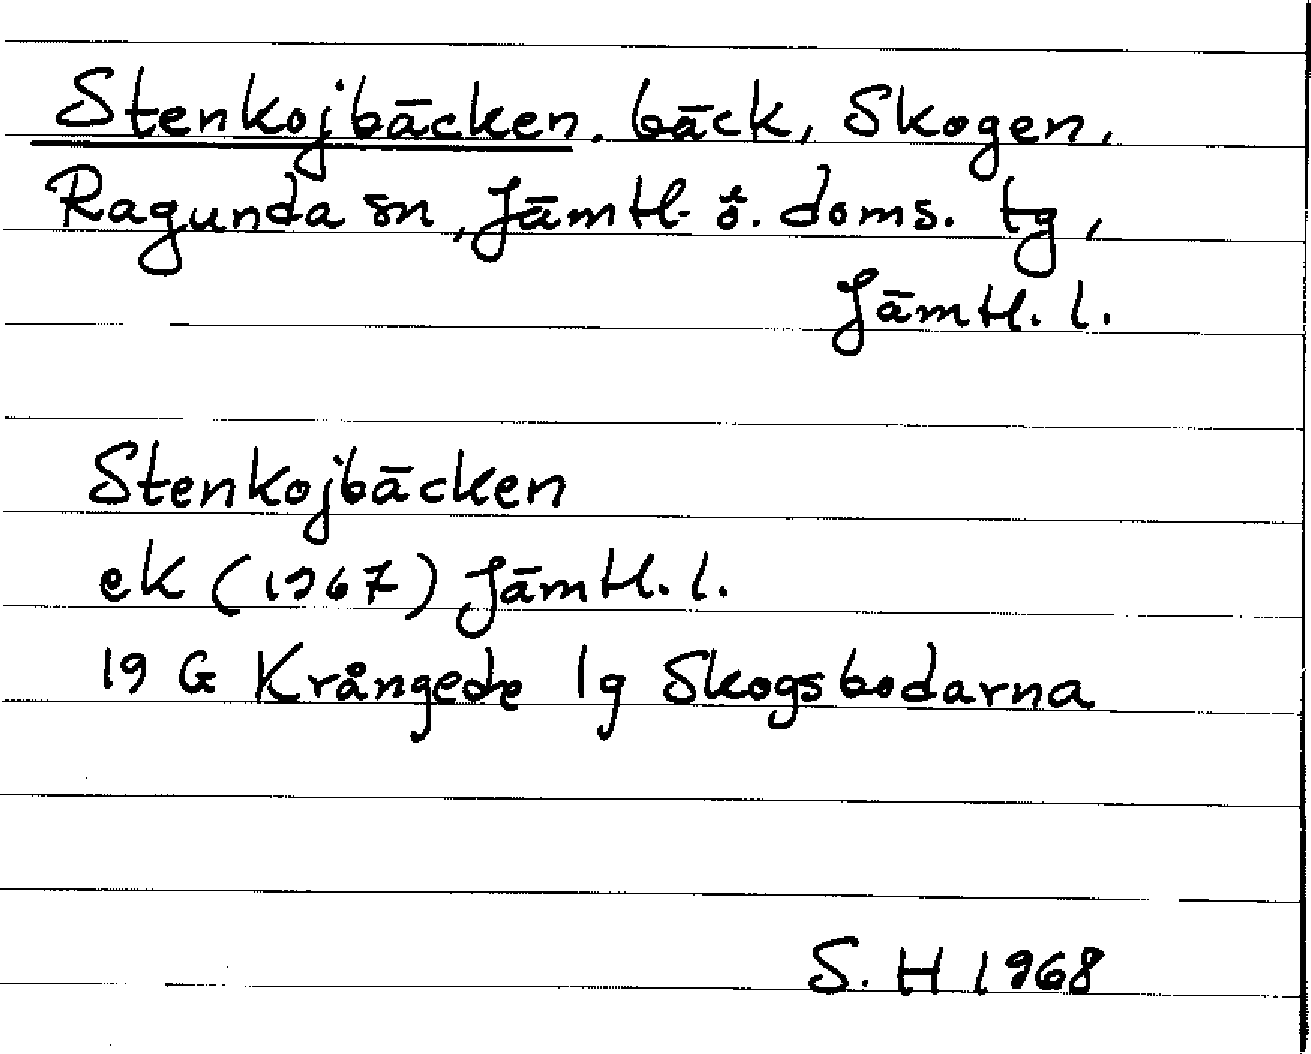 Stenkojbäcken. bäck, Skogen,
Ragunda sn, Jämtl. ö. doms. tg,
Jämtl. l.
Stenkojbäcken
ek (1967) Jämtl. l.
19 G Krångede 1g Skogsbodarna
S. H 1968